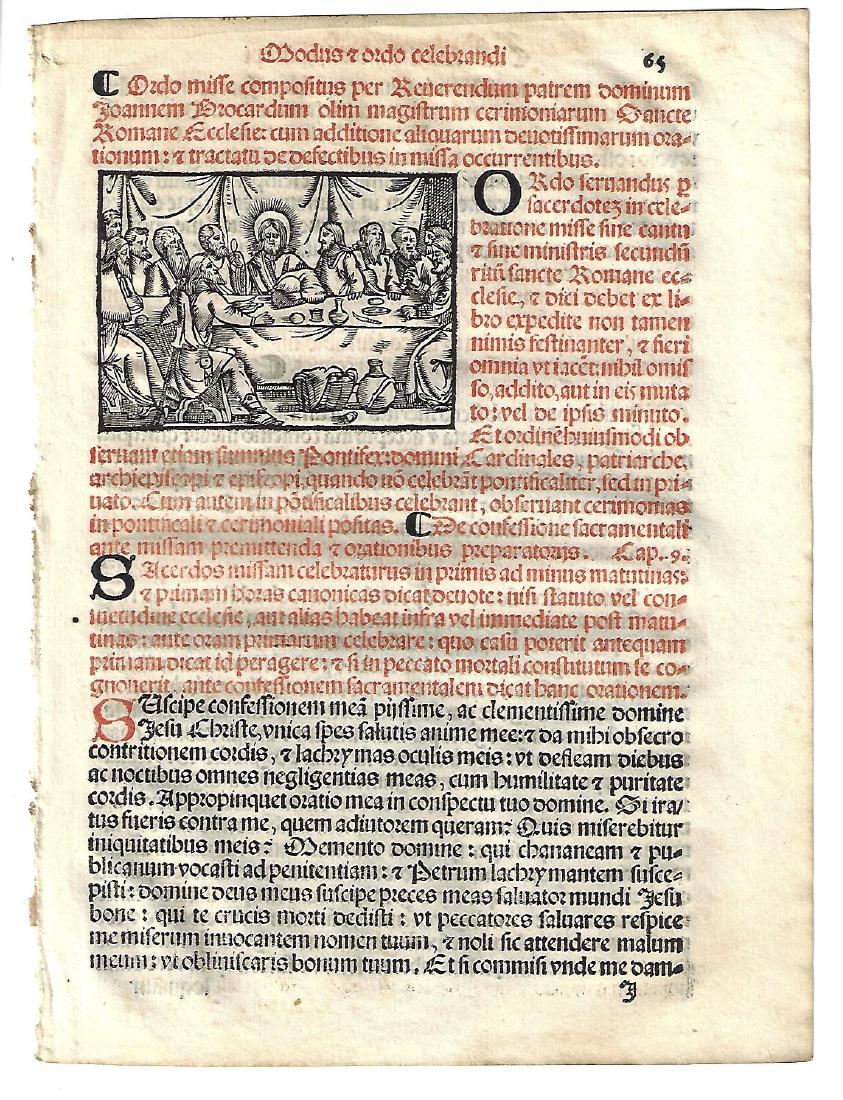 Modus ⁊ ordo celebrandi 65
¶ Ordo misse compositus per Reuerendum patrem dominum
Joannem Brocardum olim magistrum cerimoniarum Sancte
Romane Ecclesie: cum additione aliquarum deuotissimarum ora-
tionum: ⁊ tractatu de defectibus in missa occurrentibus.
ORdo seruandus ꝑ
sacerdoteꝫ in cele-
bratione misse sine cantu
⁊ sine ministris secundū
ritū sancte Romane ec-
clesie, ⁊ dici debet ex li-
bro expedite non tamen
nimis festinanter, ⁊ fieri
omnia vt iacēt: nihil omis
so, addito, aut in eis muta
to: vel de ipsis minuto.
Et ordinē huiusmodi ob
seruant etiam summus Pontifex: domini Cardinales, patriarche,
archiepiscopi ⁊ episcopi, quando nō celebrāt pontificaliter, sed in pri-
uato. Cum autem in pōtificalibus celebrant, obseruant cerimonias
in pontificali ⁊ cerimoniali positas. ¶ De confessione sacramentali
ante missam premittenda ⁊ orationibus preparatorijs. Cap.
SAcerdos missam celebraturus in primis ad minus matutinas:
⁊ primam horas canonicas dicat deuote: nisi statuto vel con-
suetudine ecclesie, aut alias habeat infra vel immediate post matu-
tinas: ante oram primarum celebrare: quo casu poterit antequam
primam dicat id peragere: ⁊ si in peccato mortali constitutum se co-
gnouerit, ante confessionem sacramentalem dicat hanc orationem.
SUscipe confessionem meā pijssime, ac clementissime domine
Jesu Christe, vnica spes salutis anime mee: ⁊ da mihi obsecro
contritionem cordis, ⁊ lachrymas oculis meis: vt defleam diebus
ac noctibus omnes negligentias meas, cum humilitate ⁊ puritate
cordis. Appropinquet oratio mea in conspectu tuo domine. Si ira/
tus fueris contra me, quem adiutorem queram? Quis miserebitur
iniquitatibus meis? Memento domine: qui chananeam ⁊ pu-
blicanum vocasti ad penitentiam: ⁊ Petrum lachrymantem susce-
pisti: domine deus meus suscipe preces meas saluator mundi Jesu
bone: qui te crucis morti dedisti: vt peccatores saluares respice
me miserum inuocantem nomen tuum, ⁊ noli sic attendere malum
meum: vt obliuiscaris bonum tuum. Et si commisi vnde me dam-
J